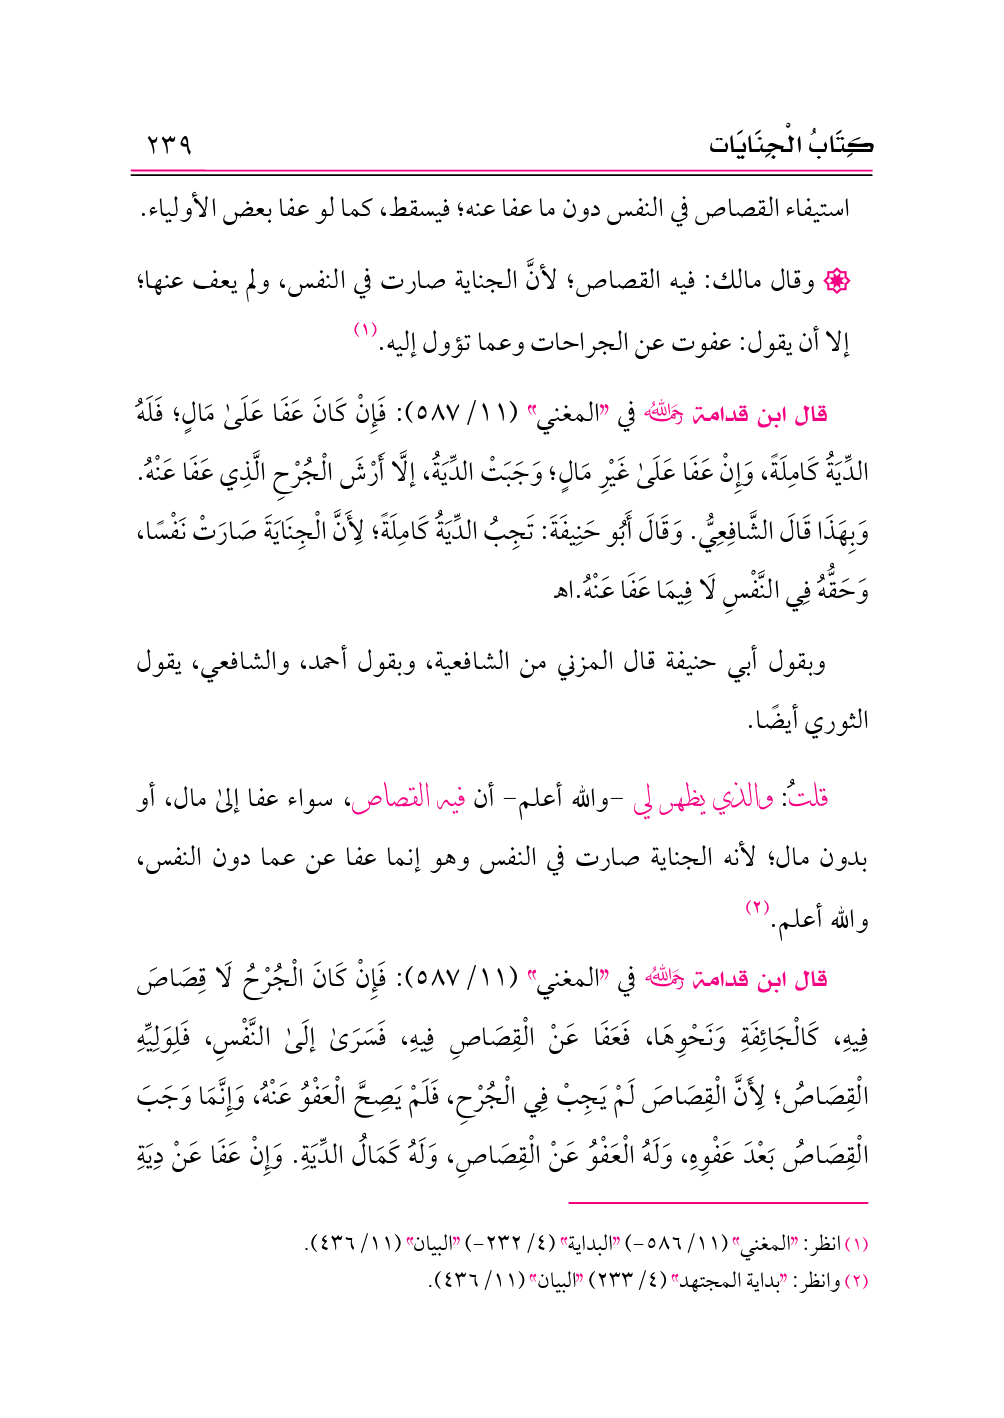 كِتَابُ الْجِنَايَات ٢٣٩
استيفاء القصاص في النفس دون ما عفا عنه؛ فيسقط، كما لو عفا بعض الأولياء.
وقال مالك: فيه القصاص؛ لأنَّ الجناية صارت في النفس، ولم يعف عنها؛
إلا أن يقول: عفوت عن الجراحات وعما تؤول إليه.(١)
قال ابن قدامة رَحِمَهُ اللَّهُ في "المغني" (١١/ ٥٨٧): فَإِنْ كَانَ عَفَا عَلَىٰ مَالٍ؛ فَلَهُ
الدِّيَةُ كَامِلَةً، وَإِنْ عَفَا عَلَىٰ غَيْرِ مَالٍ؛ وَجَبَتْ الدِّيَةُ، إلَّا أَرْشَ الْجُرْحِ الَّذِي عَفَا عَنْهُ.
وَبِهَذَا قَالَ الشَّافِعِيُّ. وَقَالَ أَبُو حَنِيفَةَ: تَجِبُ الدِّيَةُ كَامِلَةً؛ لِأَنَّ الْجِنَايَةَ صَارَتْ نَفْسًا،
وَحَقُّهُ فِي النَّفْسِ لَا فِيمَا عَفَا عَنْهُ.اهـ
وبقول أبي حنيفة قال المزني من الشافعية، وبقول أحمد، والشافعي، يقول
الثوري أيضًا.
قلتُ: والذي يظهر لي -والله أعلم- أن فيه القصاص، سواء عفا إلىٰ مال، أو
بدون مال؛ لأنه الجناية صارت في النفس وهو إنما عفا عن عما دون النفس،
والله أعلم.(٢)
قال ابن قدامة رَحِمَهُ اللَّهُ في "المغني" (١١/ ٥٨٧): فَإِنْ كَانَ الْجُرْحُ لَا قِصَاصَ
فِيهِ، كَالْجَائِفَةِ وَنَحْوِهَا، فَعَفَا عَنْ الْقِصَاصِ فِيهِ، فَسَرَىٰ إلَىٰ النَّفْسِ، فَلِوَلِيِّهِ
الْقِصَاصُ؛ لِأَنَّ الْقِصَاصَ لَمْ يَجِبْ فِي الْجُرْحِ، فَلَمْ يَصِحَّ الْعَفْوُ عَنْهُ، وَإِنَّمَا وَجَبَ
الْقِصَاصُ بَعْدَ عَفْوِهِ، وَلَهُ الْعَفْوُ عَنْ الْقِصَاصِ، وَلَهُ كَمَالُ الدِّيَةِ. وَإِنْ عَفَا عَنْ دِيَةِ
(١) انظر: "المغني" (١١/ ٥٨٦-) "البداية" (٤/ ٢٣٢-) "البيان" (١١/ ٤٣٦).
(٢) وانظر: "بداية المجتهد" (٤/ ٢٣٣) "البيان" (١١/ ٤٣٦).